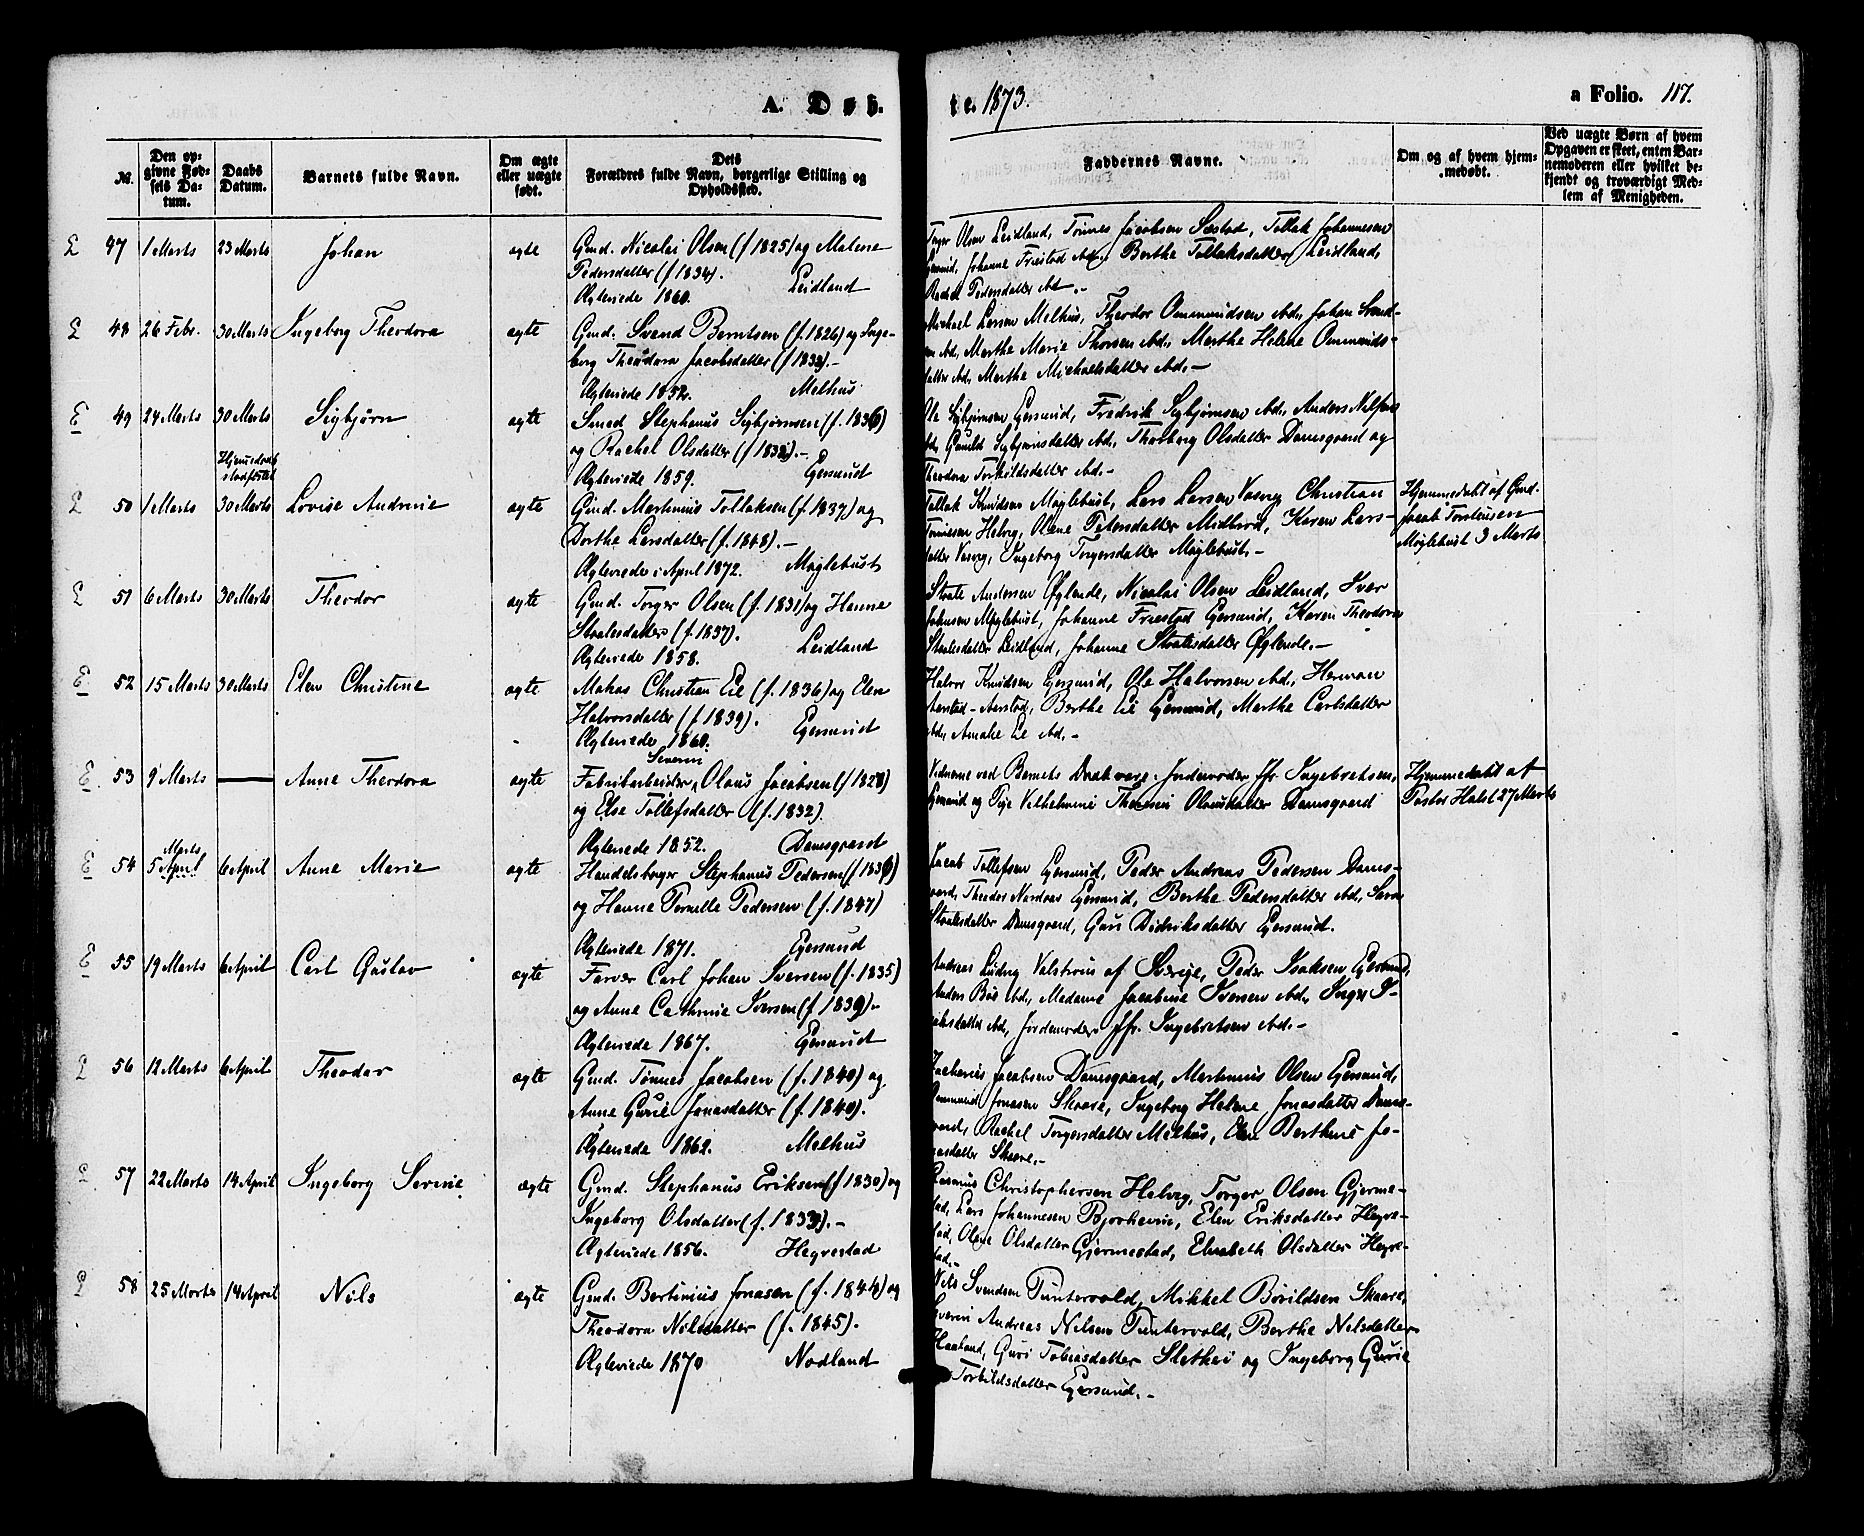 A. Døb-
te. 1873.
a Folio. 117.
№.
Den op-
givne Fød-
sels Da-
tum.
Daabs
Datum.
Barnets fulde Navn.
Om ægte
eller uægte
født.
Dets
Forældres fulde Navn, borgerlige Stilling og
Opholdssted.
Faddernes Navne.
Om og af hvem hjem-
medøbt.
Ved uægte Børn af hvem
Opgaven er skeet, enten Bar-
nemoderen eller hvilket be-
kjendt og troværdigt Med-
lem af Menigheden.
E 47 1 Marts 23 Marts Johan ægte Gmd. Nicolai Olsen (f 1825) og Malene
Pedersdatter (f 1834).
Ægteviede 1860. Leidland
Torger Olsen Leidland, Tønnes Jacobsen Sæstad, Tollak Johannesen
Egersund, Johanne Friestad ibd., Berthe Tollaksdatter Leidland,
Rachel Pedersdatter ibd.-
E 48 26 Febr. 30 Marts Ingeborg Theodora ægte Gmd. Svend Berntsen (f. 1826) og Inge-
borg Theodora Jacobsdatter (f 1832).-
Ægteviede 1852. Melhus
Michael Larsen Melhus, Theodor Ommundsen ibd., Johan Svend-
sen ibd., Marthe Marie Thorsen ibd., Marthe Helene Ommunds-
datter ibd., Marthe Michaelsdatter ibd.-
E 49 24 Marts 30 Marts Sigbjørn ægte Smed Stephanus Sigbjørnsen (f. 1836)
og Rachel Olsdatter (f 1832).-
Ægteviede 1859. Egersund
Ole Sigbjørnsen Egersund, Fredrik Sigbjørnsen ibd., Anders Nilsen
ibd., Gunild Sigbjørnsdatter ibd., Thorborg Olsdatter Damsgaard og
Theodora Torkildsdatter ibd.-
Hjemmedaab
stadfæstet
E 50 1 Marts 30 Marts Lovise Andrine ægte Gmd. Martinius Tollaksen (f. 1837) og
Dorthe Larsdatter (f. 1848).-
Ægteviede i April 1872. Møglebust
Tollak Knudsen Møglebust, Lars Larsen Vasvig, Christian
Tønnesen Helvig, Olene Petersdatter Midbrød, Karen Lars-
datter Vasvig, Ingeborg Torgersdatter Møglebust.-
Hjemmedøbt af Gmd.
Jacob Torstensen
Møglebust 3 Marts
E 51 6 Marts 30 Marts Theodor ægte Gmd. Torger Olsen (f. 1831) og Hanne
Staalesdatter (f. 1837).
Ægteviede 1858. Leidland
Staale Andersen Øglende, Nicolai Olsen Leidland, Iver
Johnsen Møglebust, Johanne Friestad Egersund, Karen Theodora
Staalesdatter Leidland, Johanne Staalesdatter Øglende.-
E 52 15 Marts 30 Marts Elen Christine ægte Matros Christian Eie (f. 1836) og Elen
Halvorsdatter (f 1839).
Ægteviede 1860. Egersund
Halvor Knudsen Egersund, Ole Halvorsen ibd., Herman
Aarstad - Aarstad, Berthe Eie Egersund, Marthe Carlsdatter
ibd., Amalie Eie ibd.-
E 53 9 Marts — Anne Theodora ægte Fabrikarbeider Severin Olaus Jacobsen (f 1828)
og Else Tollefsdatter (f. 1832).
Ægteviede 1852. Damsgaard
Vidnerne ved Barnets Daab vare: Jordemoder Jfr. Ingebretsen,
Egersund og Pige Vilhelmine Thomine Olausdatter Damsgaard
Hjemmedøbt af
Pastor Halst 27 Marts
E 54 5 Marts April 6 April Anne Marie ægte Handelsborger Stephanus Pedersen (f 1836)
og Hanne Pernille Pedersen (f. 1847)
Ægteviede 1871. Egersund
Jacob Tollefsen Egersund, Peder Andreas Pedersen Dams-
gaard, Theodor Nordaas Egersund, Berthe Pedersdatter ibd., Sara
Staalesdatter Damsgaard, Guri Didriksdatter Egersund.
E 55 19 Marts 6 April Carl Gustav ægte Farver Carl Johan Iversen (f. 1835)
og Anne Cathrine Iversen (f 1839).-
Ægteviede 1867. Egersund
Andreas Ludvig Valstrøm af Sverige, Peder Isaksen Egersund,
Anders Bøe ibd., Madame Jacobine Iversen ibd., Inger I-
saksdatter ibd., Jordemoder Jfr. Ingebretsen ibd.-
E 56 12 Marts 6 April Theodor ægte Gmd. Tønnes Jacobsen (f. 1840) og
Anne Gurie Jonasdatter (f. 1840).
Ægteviede 1862. Melhus
Zacharias Jacobsen Damsgaard, Martinius Olsen Egersund,
Ommund Jonasen Skaare, Ingeborg Helene Jonasdatter Dams-
gaard, Rachel Torgersdatter Melhus, Elen Berthine Jo-
nasdatter Skaare.-
E 57 22 Marts 14 April Ingeborg Serine ægte Gmd. Stephanus Eriksen (f 1830) og
Ingeborg Olsdatter (f. 1833).-
Ægteviede 1856. Hegrestad
Rasmus Christophersen Helvig, Torger Olsen Gjerme-
stad, Lars Johannesen Bjorheim, Elen Eriksdatter Hegre-
stad, Olene Olsdatter Gjermestad, Elisabeth Olsdatter Hegre-
stad.-
E 58 25 Marts 14 April Nils ægte Gmd. Bertinius Jonasen (f. 1844) og
Theodora Nilsdatter (f. 1845).
Ægteviede 1870 Nodland
Nils Svendsen Tuntervold, Mikkel Bovildsen Skaare,
Sverin Andreas Nilsen Tuntervold, Berthe Nilsdatter
Haaland, Guri Tobiasdatter Slethei og Ingeborg Gurie
Torkildsdatter Egersund.-